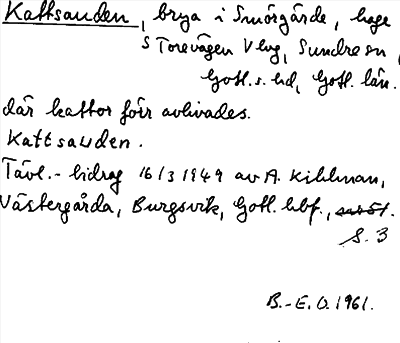 Kattsanden, brya i Smörgårde, hage
S Torevägen V lvg, Sundre sn,
Gotl. s. hd, Gotl. län.
där kattor förr avlivades.
Kattsanden.
Tävl.-bidrag 16/3 1949 av A. Killman,
Västergårda, Burgsvik, Gotl. hbf.,
S. 3
B.-E. O. 1961.